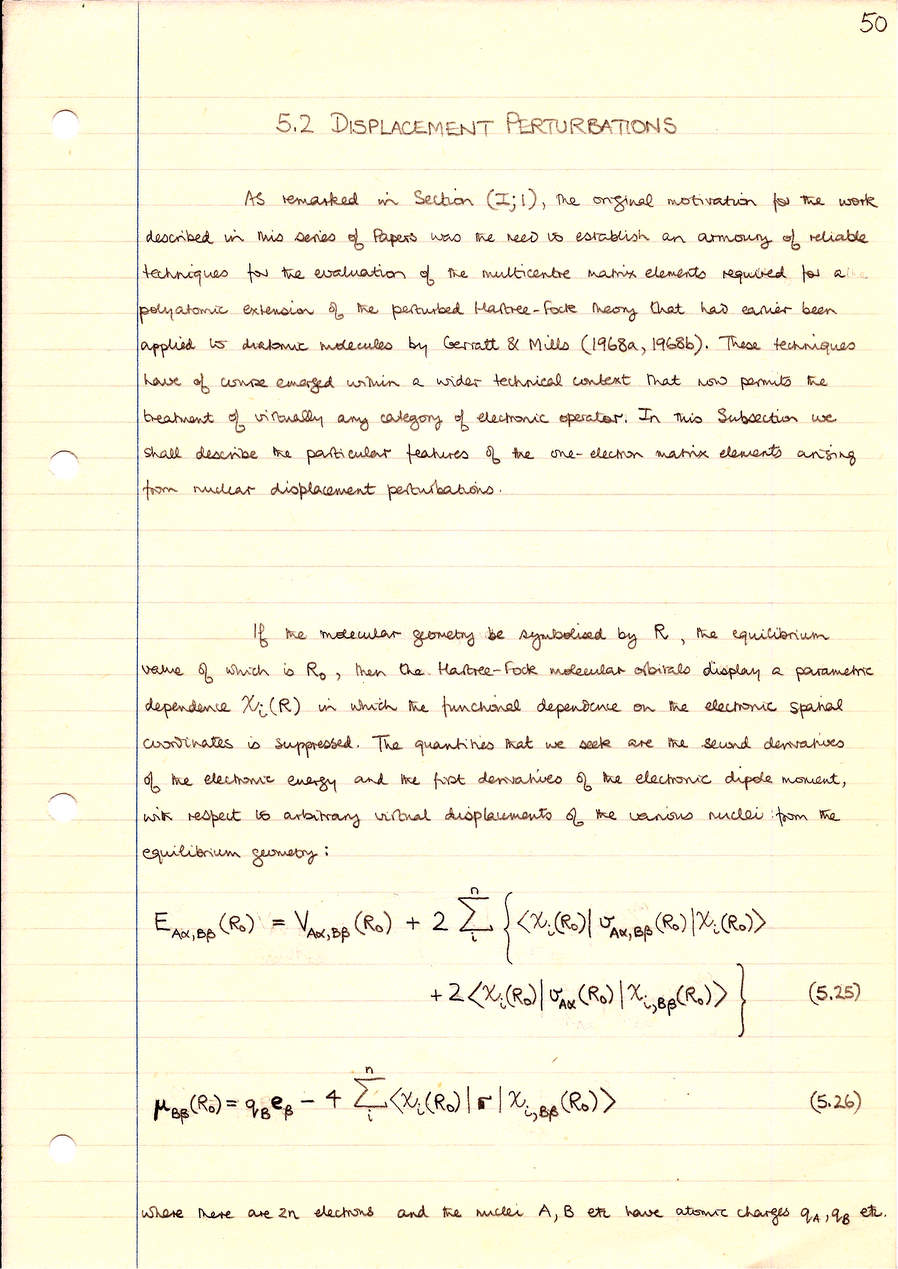 50
5.2 DISPLACEMENT PERTURBATIONS
As remarked in Section (I;1), the original motivation for the work
described in this series of Papers was the need to establish an armoury of reliable
techniques for the evaluation of the multicentre matrix elements required for a
polyatomic extension of the perturbed Hartree-Fock theory that had earlier been
applied to diatomic molecules by Gerratt & Mills (1968a, 1968b). These techniques
have of course emerged within a wider technical context that now permits the
treatment of virtually any category of electronic operator. In this Subsection we
shall describe the particular features of the one-electron matrix elements arising
from nuclear displacement perturbations.
If the molecular geometry be symbolised by R, the equilibrium
value of which is R₀, then the Hartree-Fock molecular orbitals display a parametric
dependence χᵢ(R) in which the functional dependence on the electronic spatial
coordinates is suppressed. The quantities that we seek are the second derivatives
of the electronic energy and the first derivatives of the electronic dipole moment,
with respect to arbitrary virtual displacements of the various nuclei from the
equilibrium geometry:
E_{Aα,Bβ}(R₀) = V_{Aα,Bβ}(R₀) + 2 ∑ᵢⁿ { ⟨χᵢ(R₀)| v_{Aα,Bβ}(R₀) |χᵢ(R₀)⟩
+ 2⟨χᵢ(R₀)| v_{Aα}(R₀) |χ_{i,Bβ}(R₀)⟩ } (5.25)
μ_{Bβ}(R₀) = q_B e_β − 4 ∑ᵢⁿ ⟨χᵢ(R₀)| r |χ_{i,Bβ}(R₀)⟩ (5.26)
where there are 2n electrons and the nuclei A, B etc have atomic charges q_A, q_B etc.